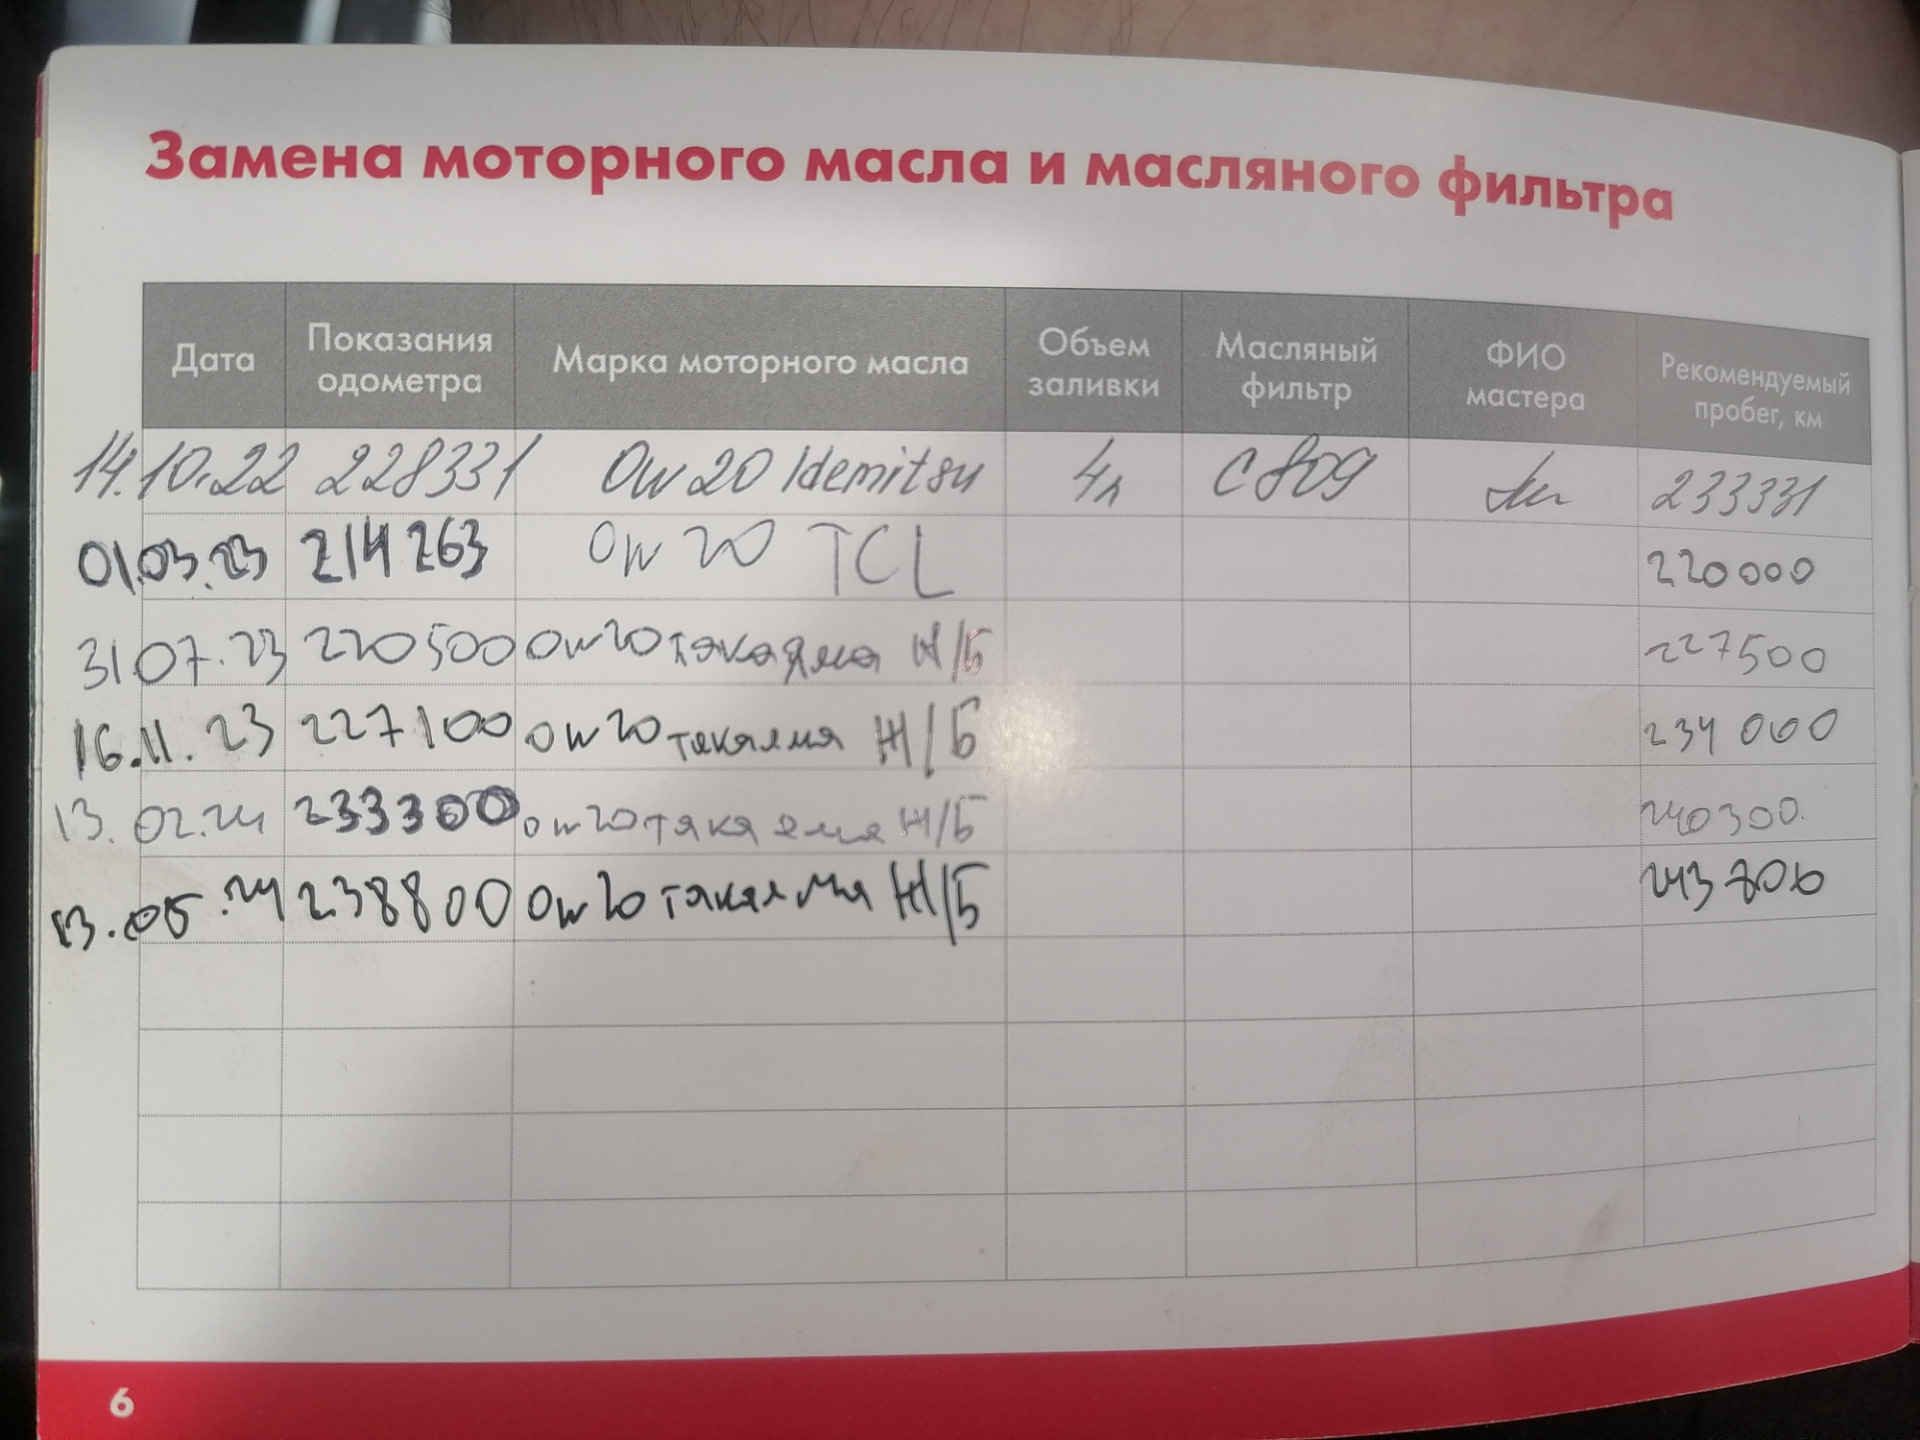 Замена моторного масла и масляного фильтра
Дата Показания одометра Марка моторного масла Объем заливки Масляный фильтр ФИО мастера Рекомендуемый пробег, км
14.10.22 228331 0w20 Idemitsu 4л C809 233331
01.03.23 214263 0w20 TCL 220000
31 07.23 220500 0w20 такаяма Ж/Б 227500
16.11.23 227100 0w20 такаяма Ж/Б 234000
13.02.24 233300 0w20 такаяма Ж/Б 240300.
13.05.24 238800 0w20 такаяма Ж/Б
6